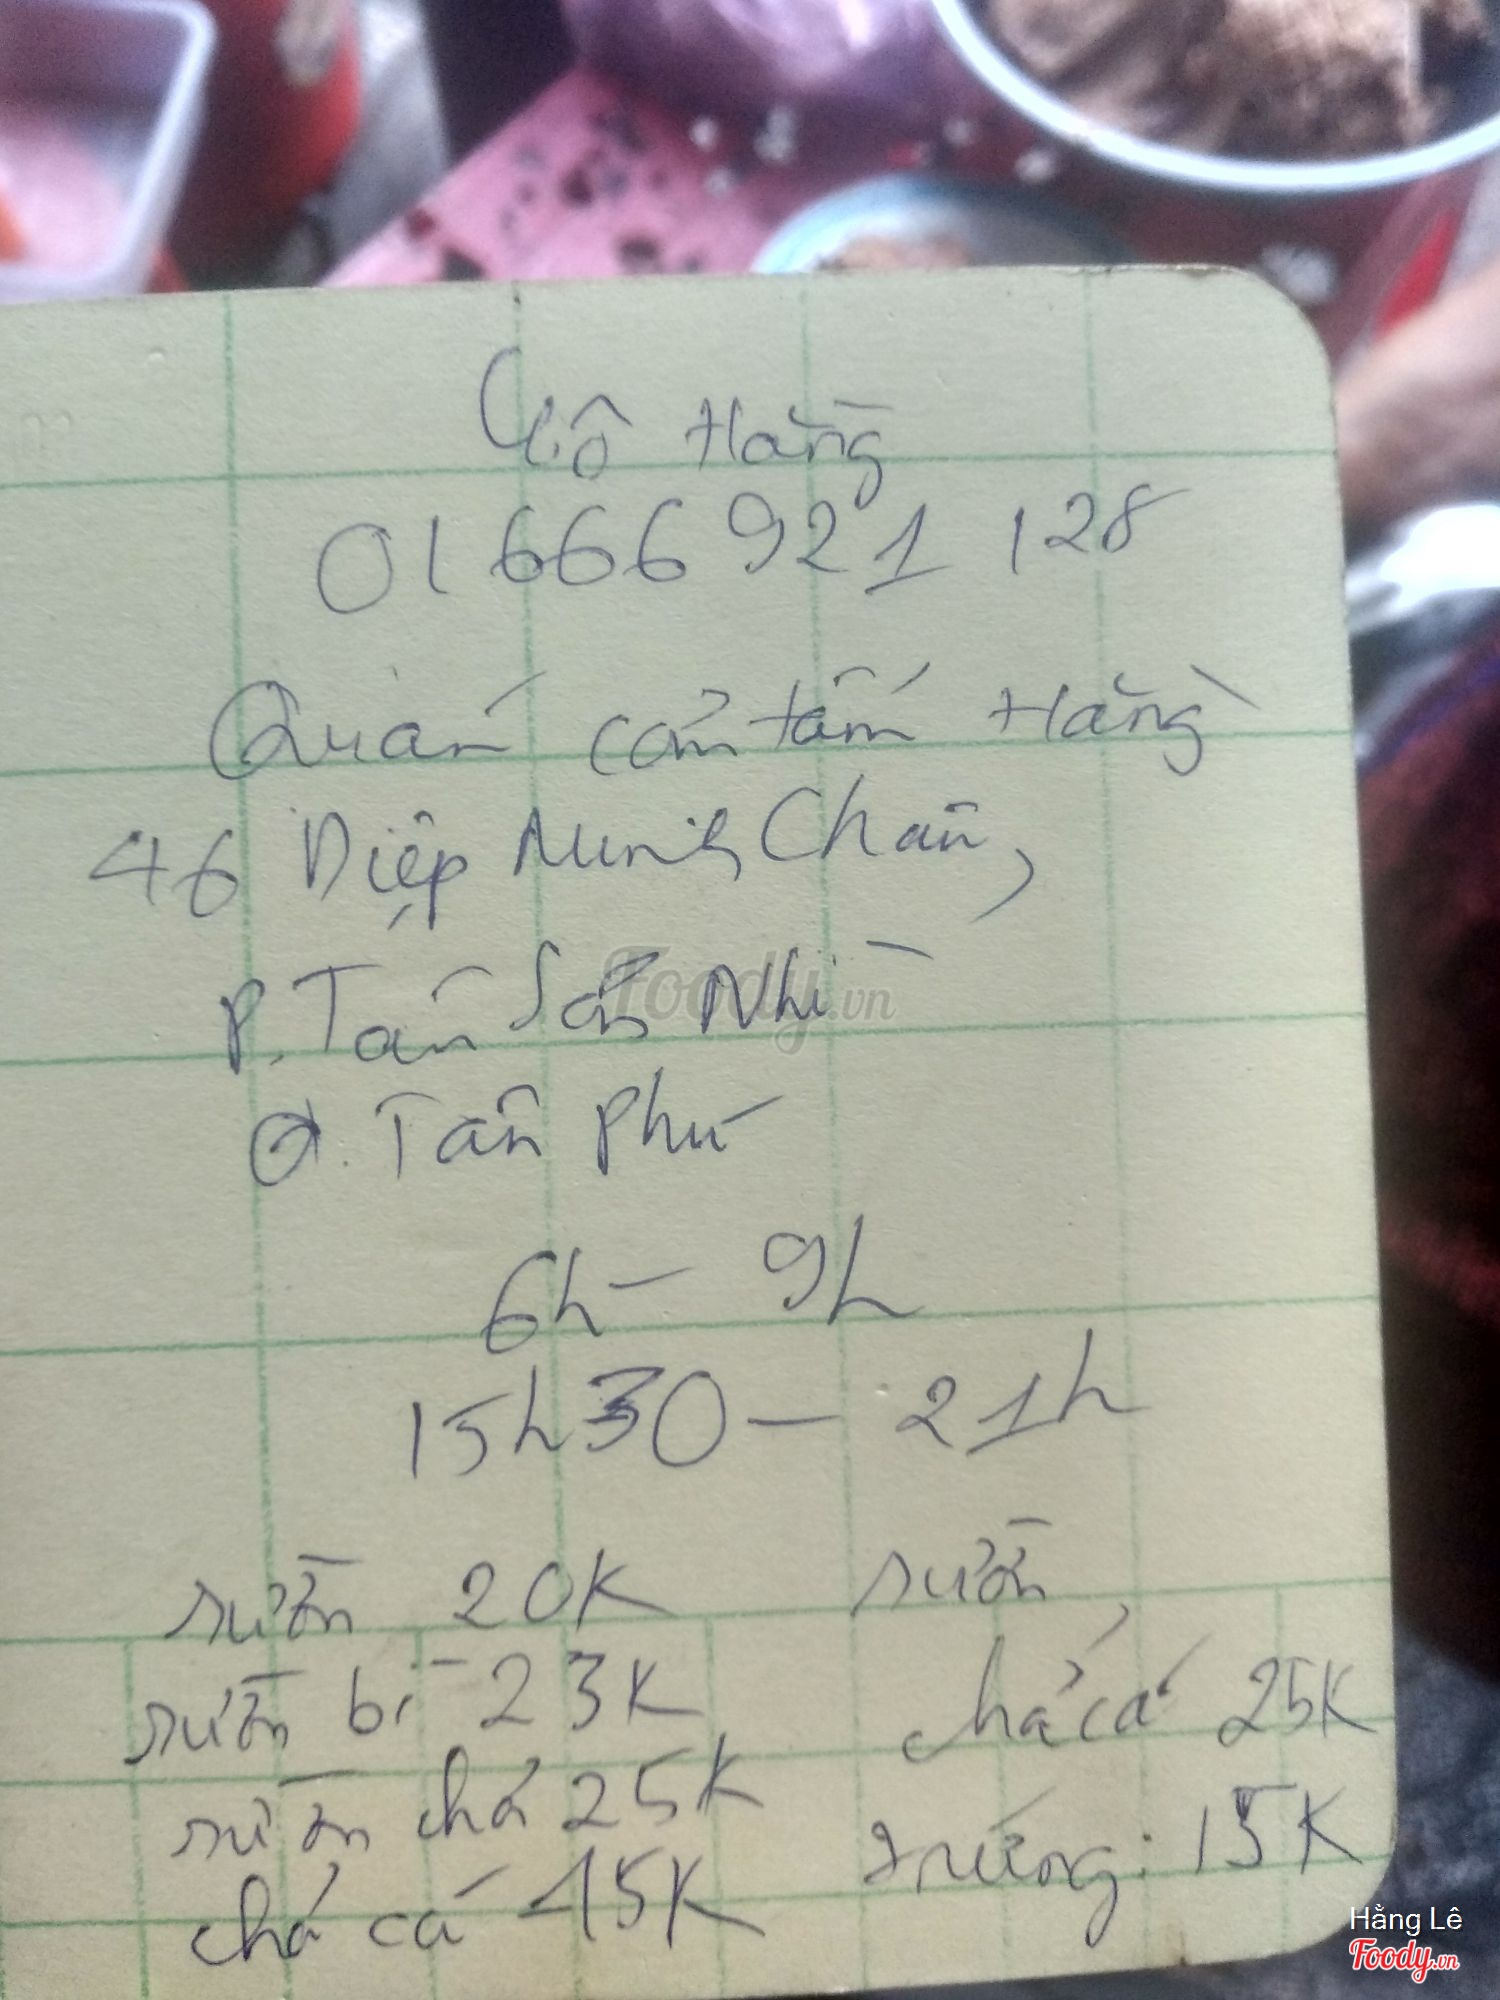 Cô Hằng
01666 921 128
Quán cơm tấm Hằng
46 Diệp Minh Châu,
P. Tân Sơn Nhì
Q. Tân Phú
6h - 9h
15h30 - 21h
sườn 20K
sườn bì 23K
sườn chả 25K
chả cá 15K
sườn,
chả cá 25K
trứng: 15K
Foody.vn
Hằng Lê
Foody.vn